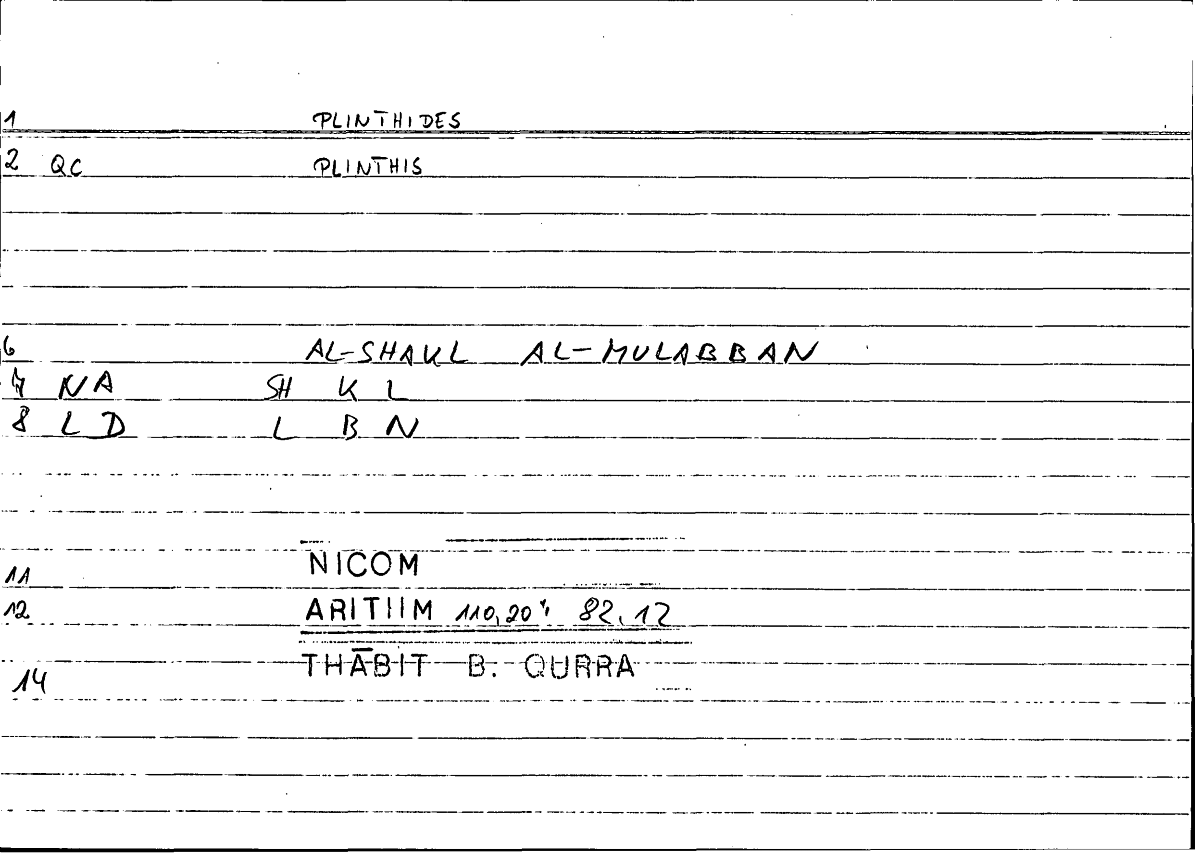 1 PLINTHIDES
2 QC PLINTHIS
6 AL-SHAKL AL-MULABBAN
7 NA SH K L
8 LD L B N
11 NICOM
12 ARITIIM 110,20; 82,12
14 THĀBIT B. QURRA